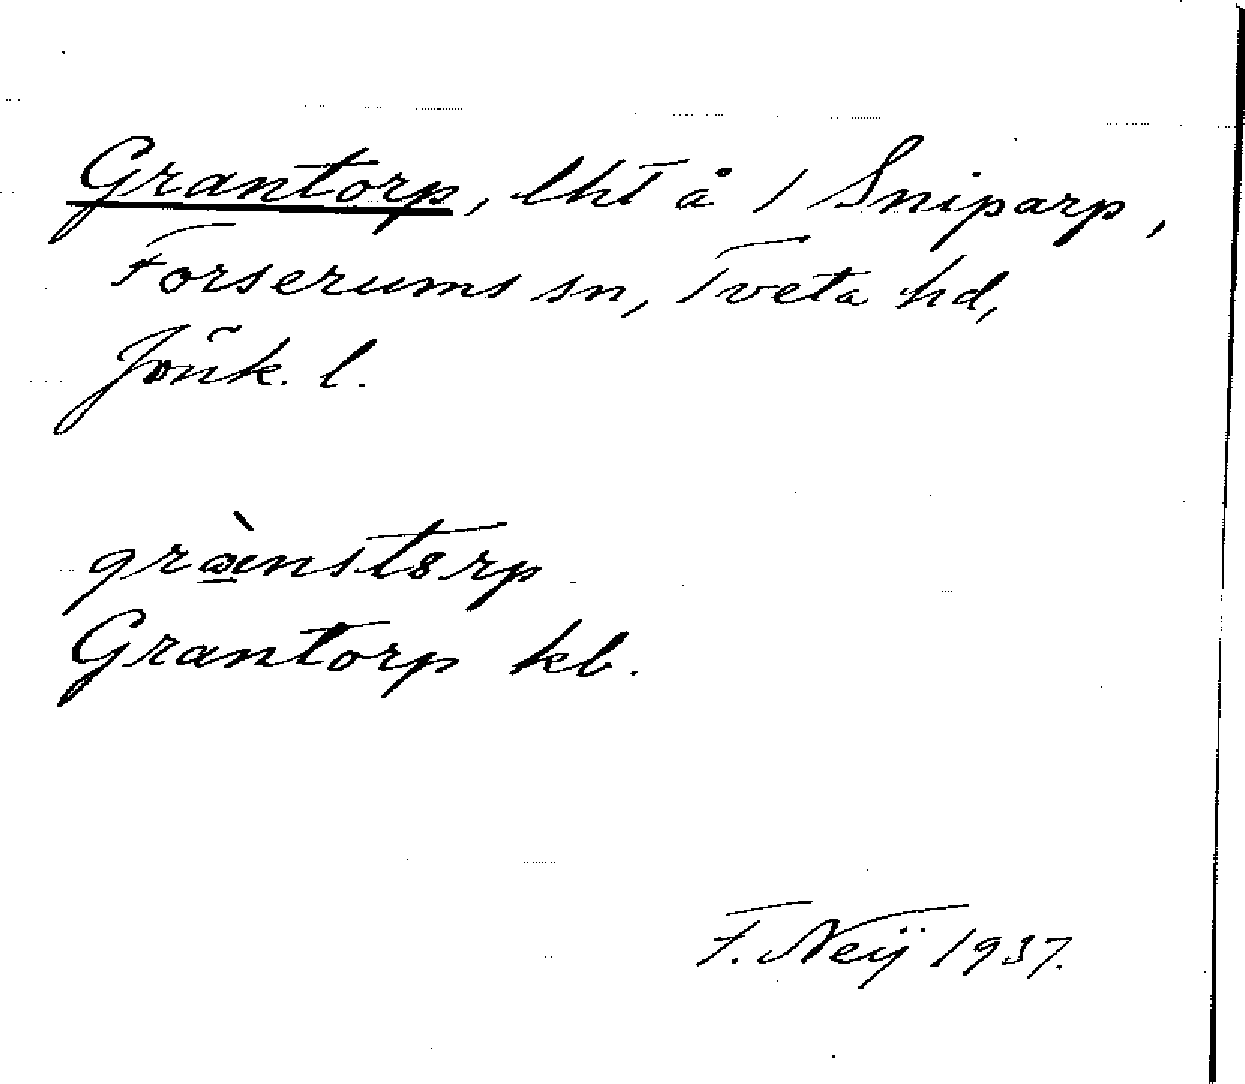 Grantorp, lht å 1 Sniparp,
Forserums sn, Tveta hd,
Jönk. l.
græ̀nstorp
Grantorp kb.
F. Neij 1937.